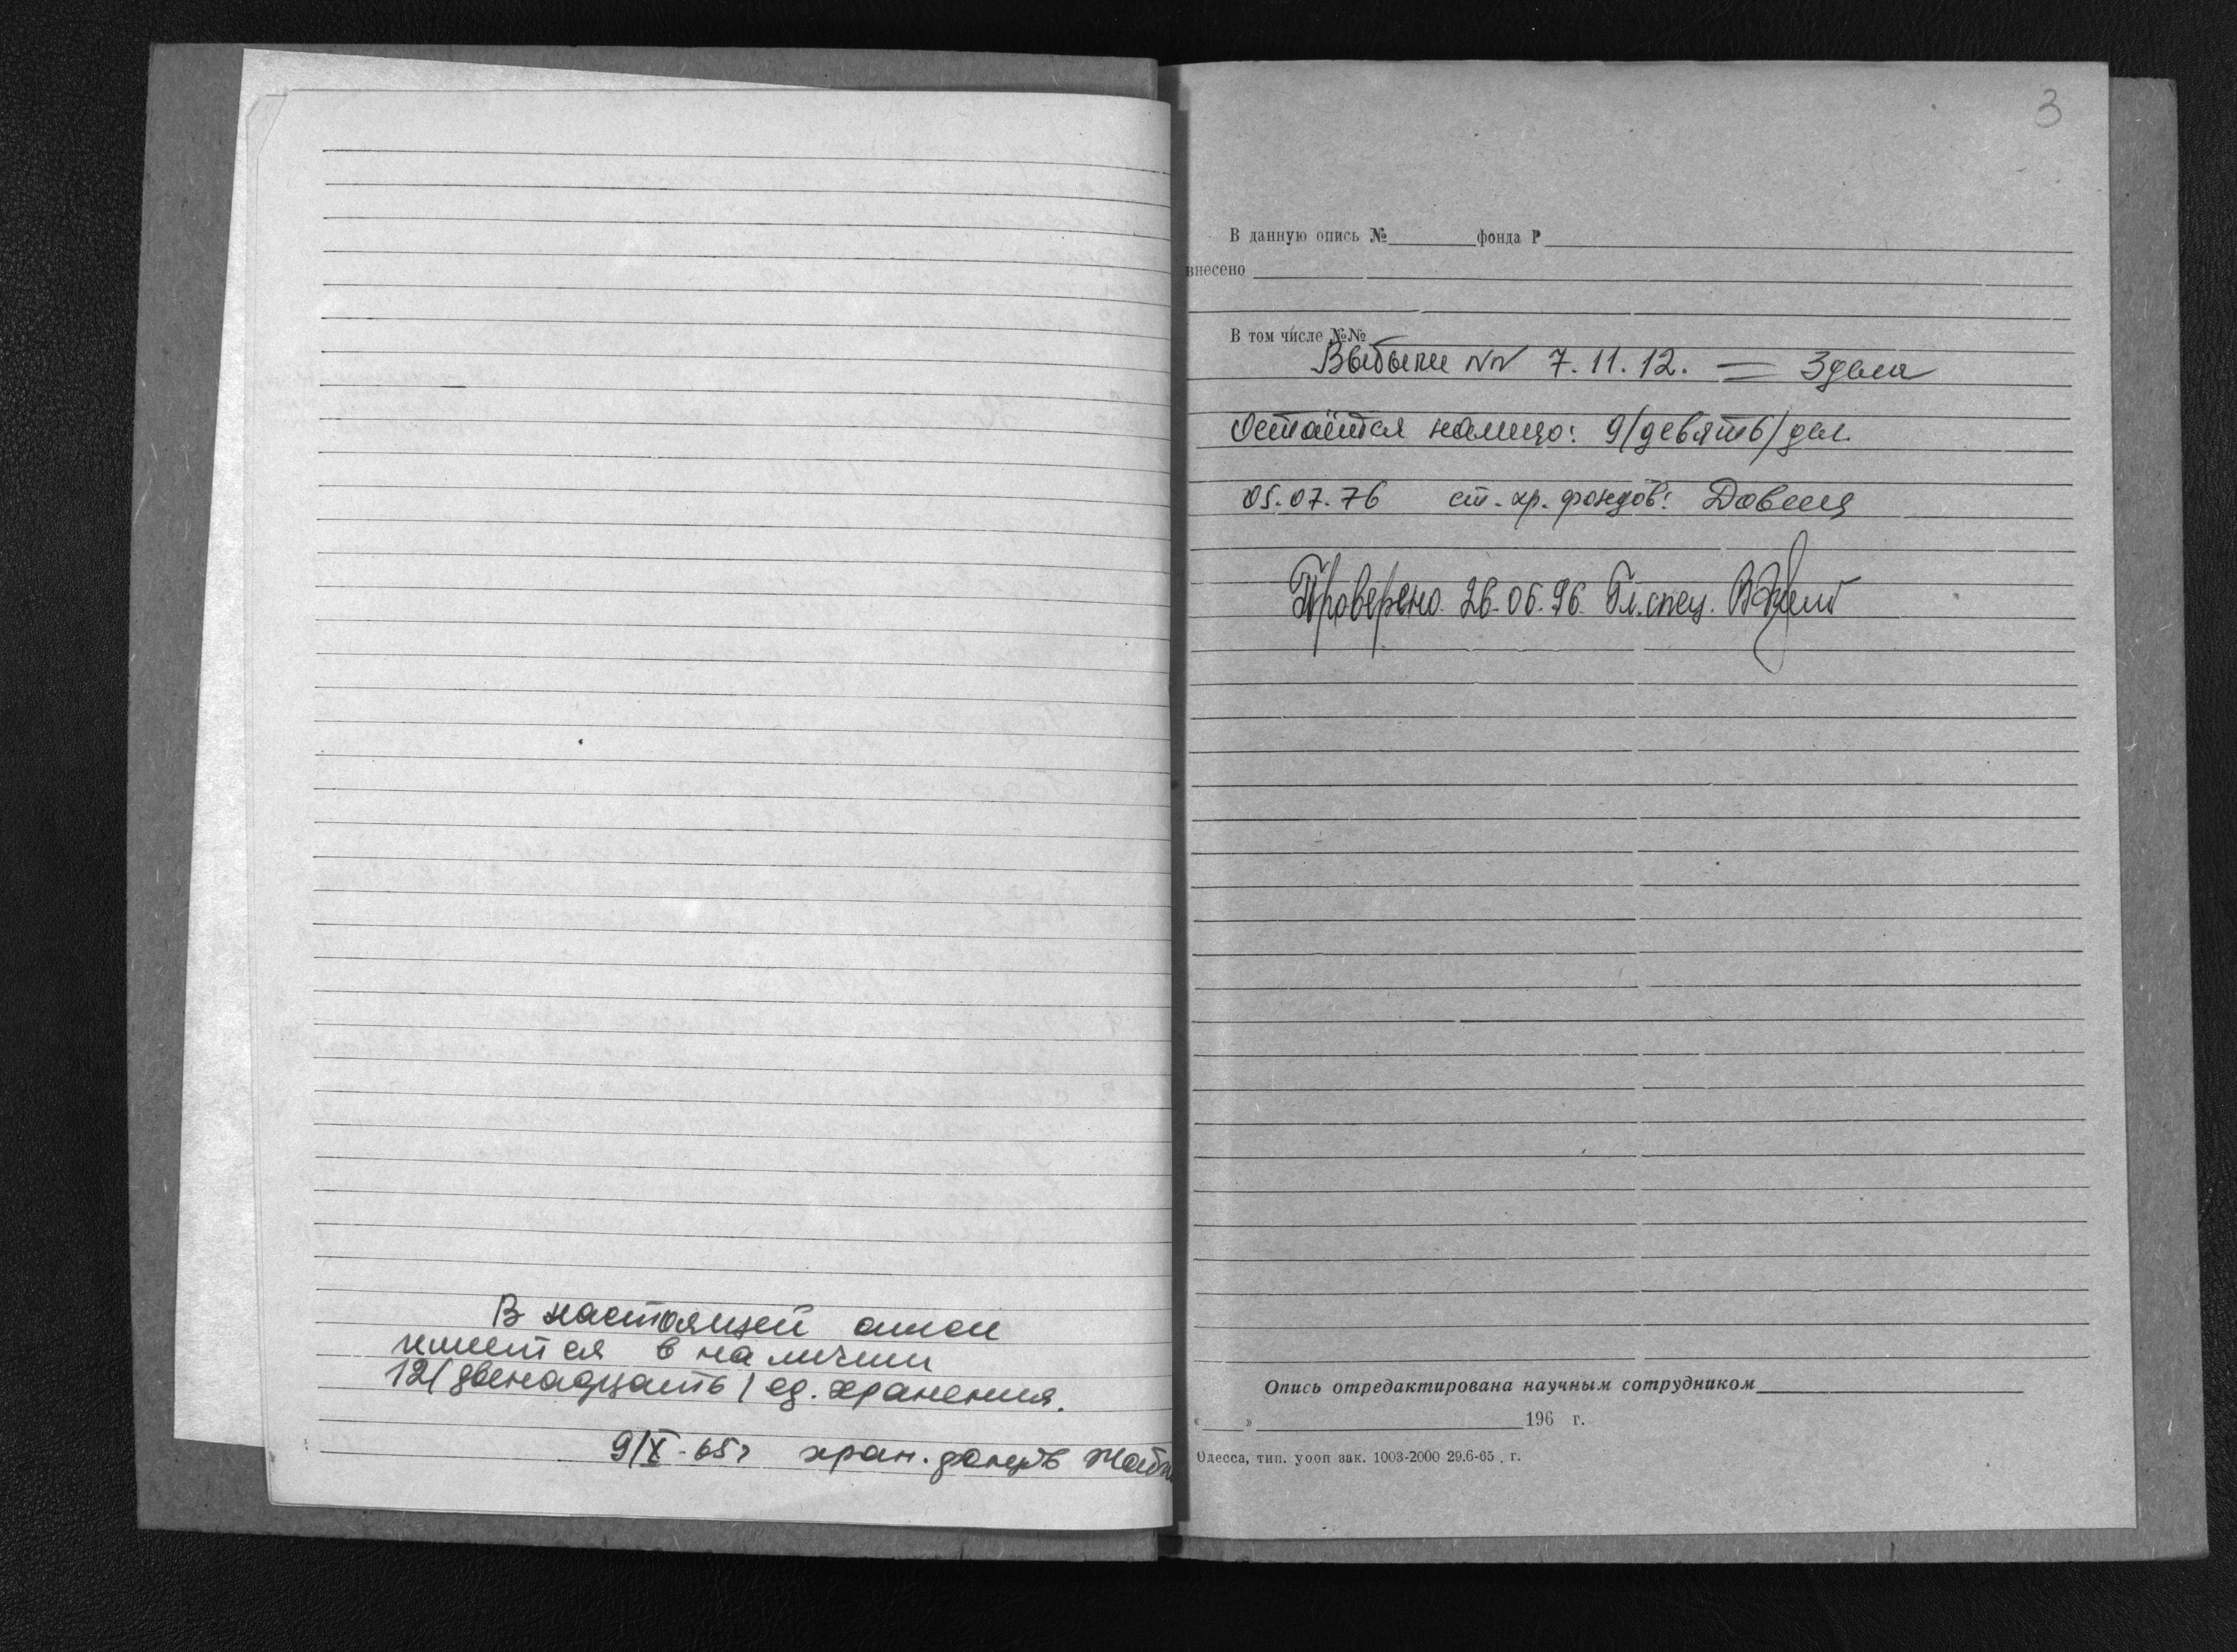 В настоящей описи
имеется в наличии
12/двенадцать/ ед. хранения.
9/X-65г хран. фондов
3
В данную опись № фонда Р
внесено
В том числе №№
Выбыли NN 7.11.12. = 3 дела
Остаётся налицо: 9/девять/дел.
05.07.76 ст. хр. фондов:
Проверено 26.06.96. Гл. спец.
Опись отредактирована научным сотрудником
« » 196 г.
Одесса, тип. уооп зак. 1003-2000 29.6-65 . г.